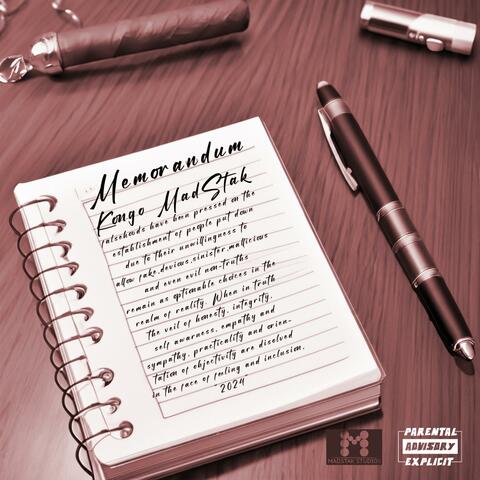 Memorandum
Kongo MadStak
falsehoods have been pressed on the
establishment of people put down
due to their unwillingness to
allow fake,devious,sinister,mallicious
and even evil non-truths
remain as optionable choices in the
realm of reality. When in truth
the veil of honesty, integrity,
self awarness, empathy and
sympathy, practicality and orien-
tation of objectivity are disolved
in the face of feeling and inclusion.
"2024"
M
MADSTAK STUDIOS
PARENTAL
ADVISORY
EXPLICIT